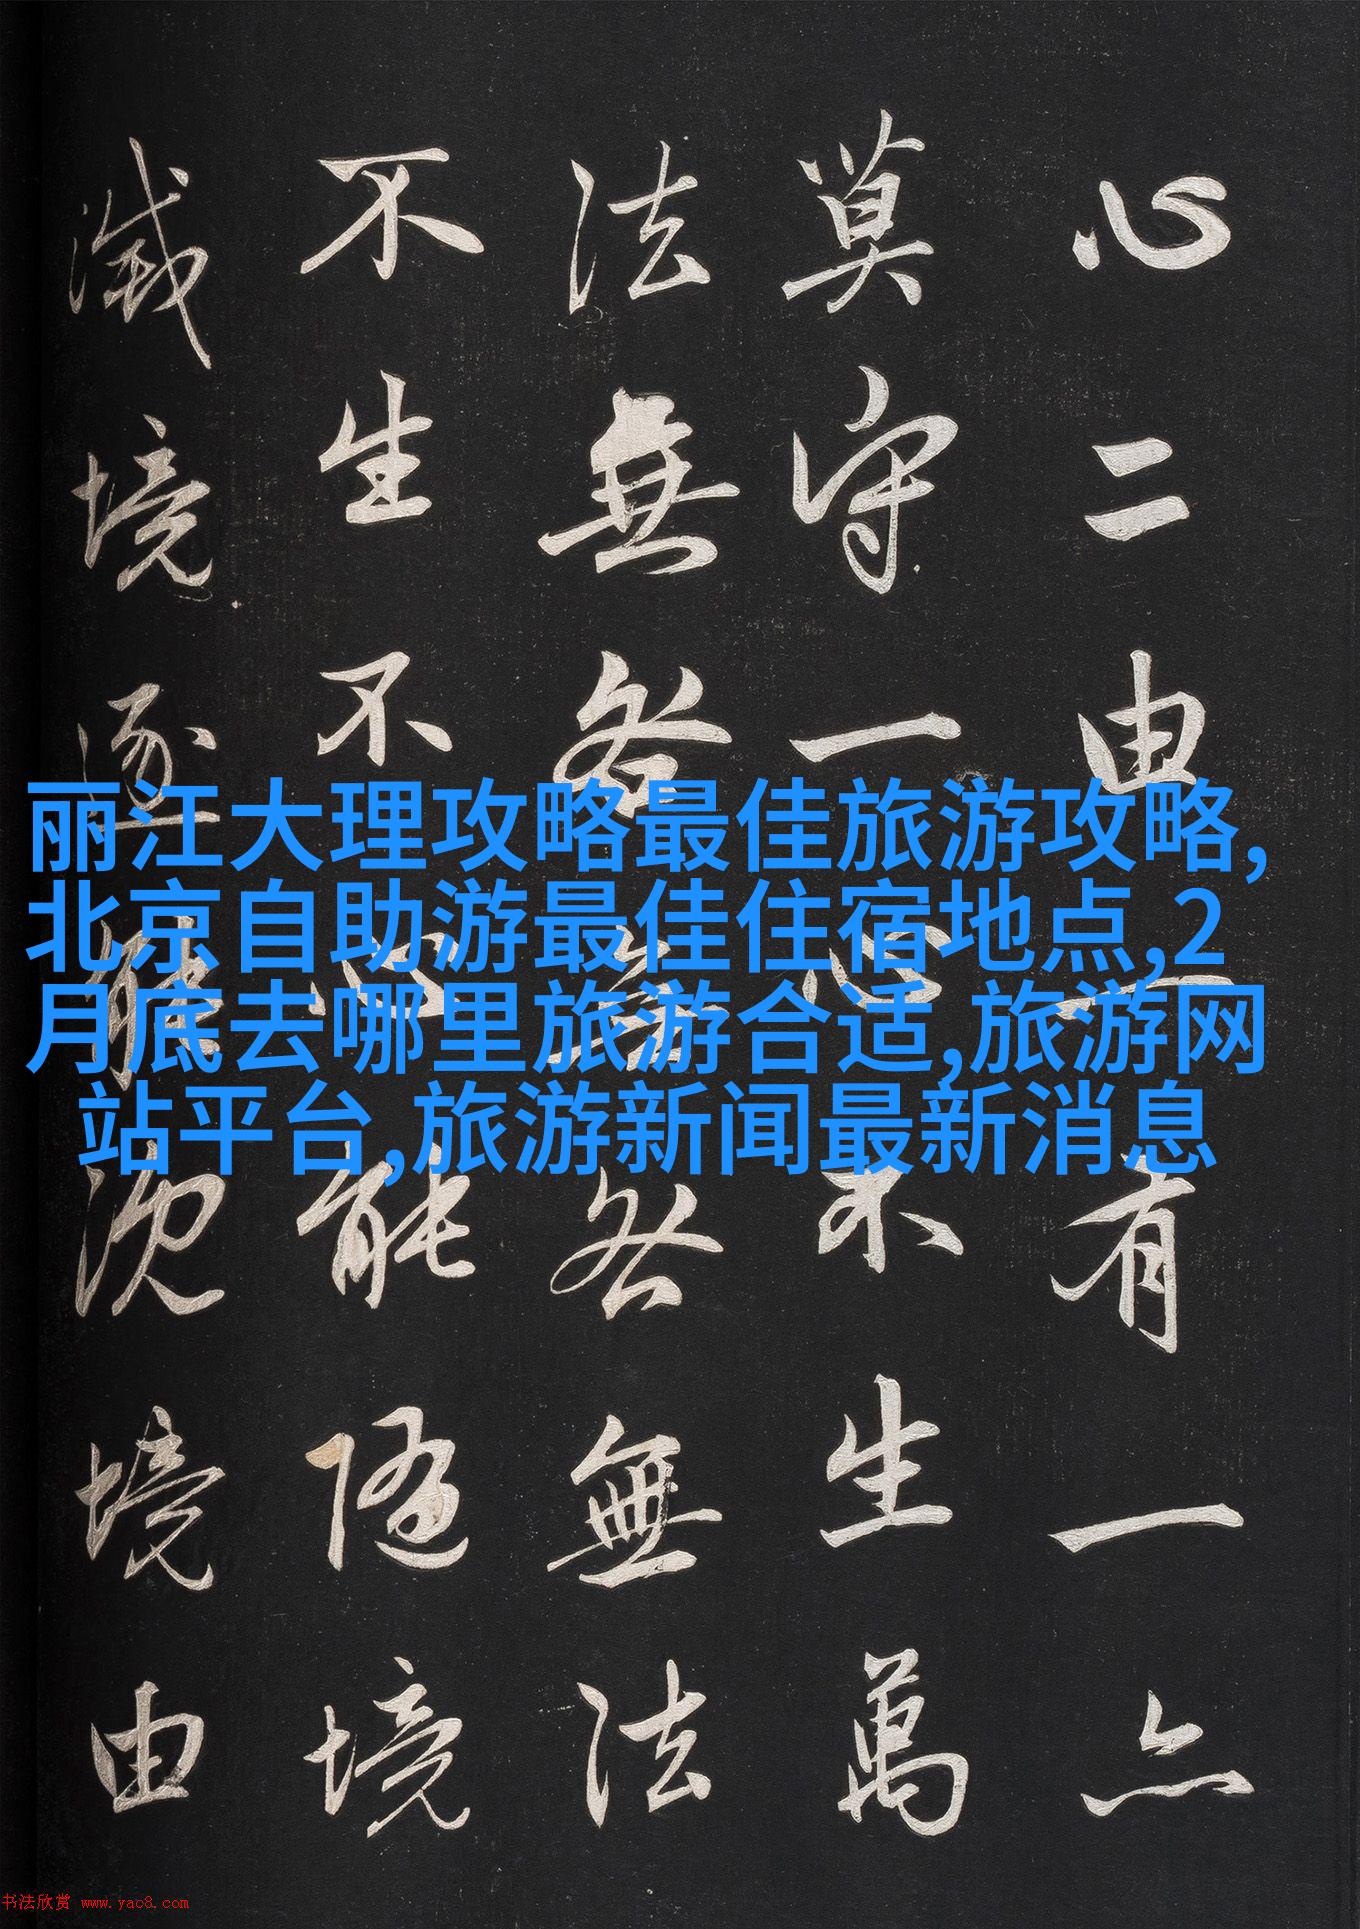 心二由一有一亦
莫守一心不生萬
法無咎無咎無法
不生不心能隨境
滅境逐能沉境由
丽江大理攻略最佳旅游攻略,
北京自助游最佳住宿地点,2
月底去哪里旅游合适,旅游网
站平台,旅游新闻最新消息
书法欣赏 www.yac8.com